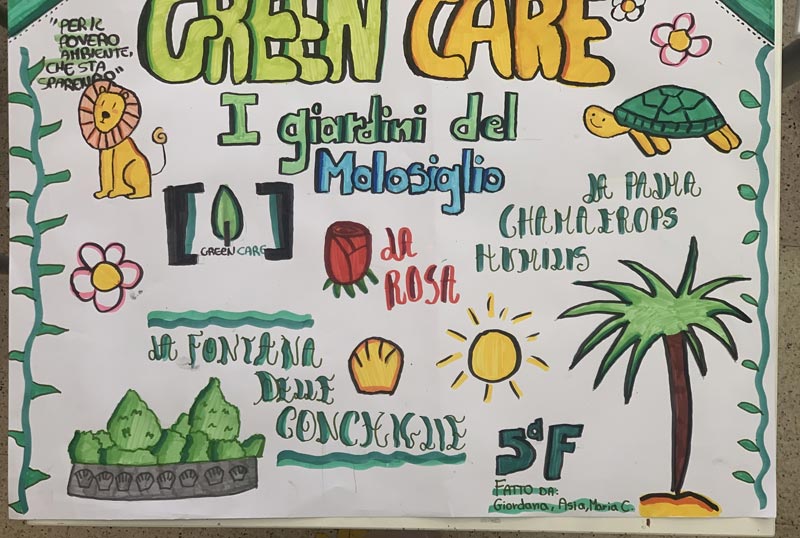 GREEN CARE
"PER IL
POVERO
AMBIENTE,
CHE STA
SPARENDO"
I giardini del
Molosiglio
GREEN CARE
LA ROSA
LA PALMA
CHAMAEROPS
HUMILIS
LA FONTANA
DELLE
CONCHIGLIE
5ªF
FATTO DA:
Giordana, Asia, Maria C.